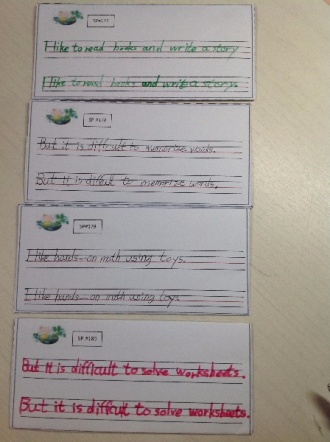 SP#177
I like to read books and write a story
I like to read books and write a story.
SP #178
But it is difficult to memorize words.
But it is difficult to memorize words.
SP#179
I like hands-on math using toys.
I like hands-on math using toys.
SP #180
But it is difficult to solve worksheets.
But it is difficult to solve worksheets.